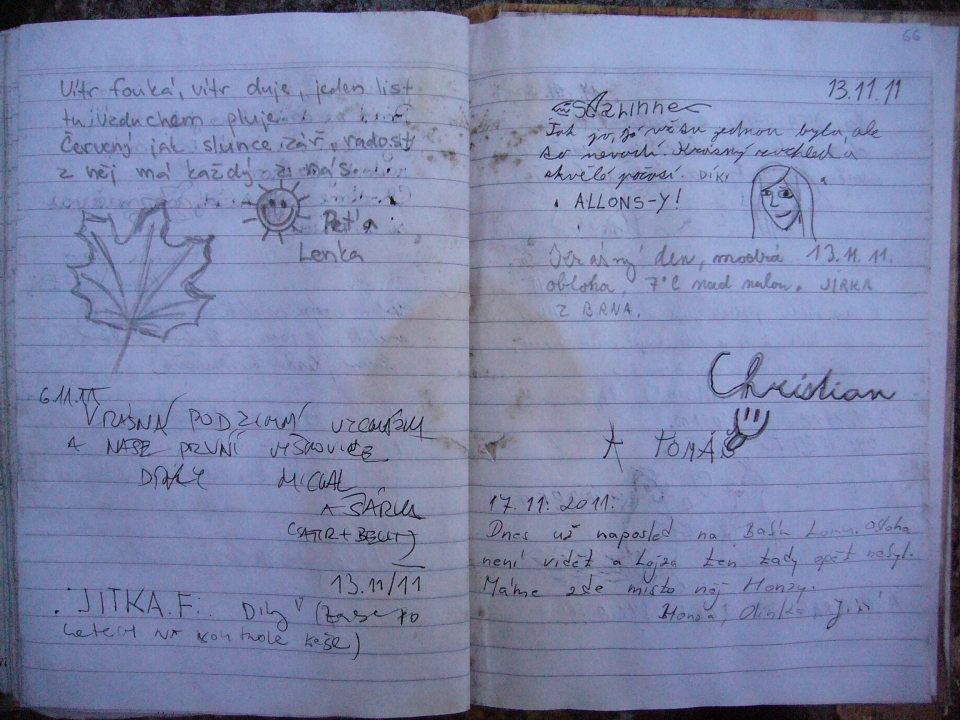 Vítr fouká, vítr duje, jeden list
tu vzduchem pluje.
Červený jak slunce zář, radost
z něj má každý z nás.
Peťa
Lenka
6.11.11
KRÁSNÁ PODZIMNÍ
A NAŠE PRVNÍ
DÍKY MICHAL
A ŠÁRKA
13.11/11
JITKA.F: Díky (zase po
letech na kontrole kaše)
66
13.11.11
Jak jo, já věžu jednou byla, ale
to nevadí. Krásný rozhled a
skvělé počasí. DÍKY
ALLONS-Y!
Krásný den, modrá 13.11.11.
obloha, 7°C nad nulou. JIRKA
Z BRNA.
Christian
A TOMÁŠ
17.11.2011.
Dnes už naposled na Obloha
není vidět a Lojza ten tady opět nebyl.
Máme zde místo něj Honzy.
Honza, Olinka, Jiří